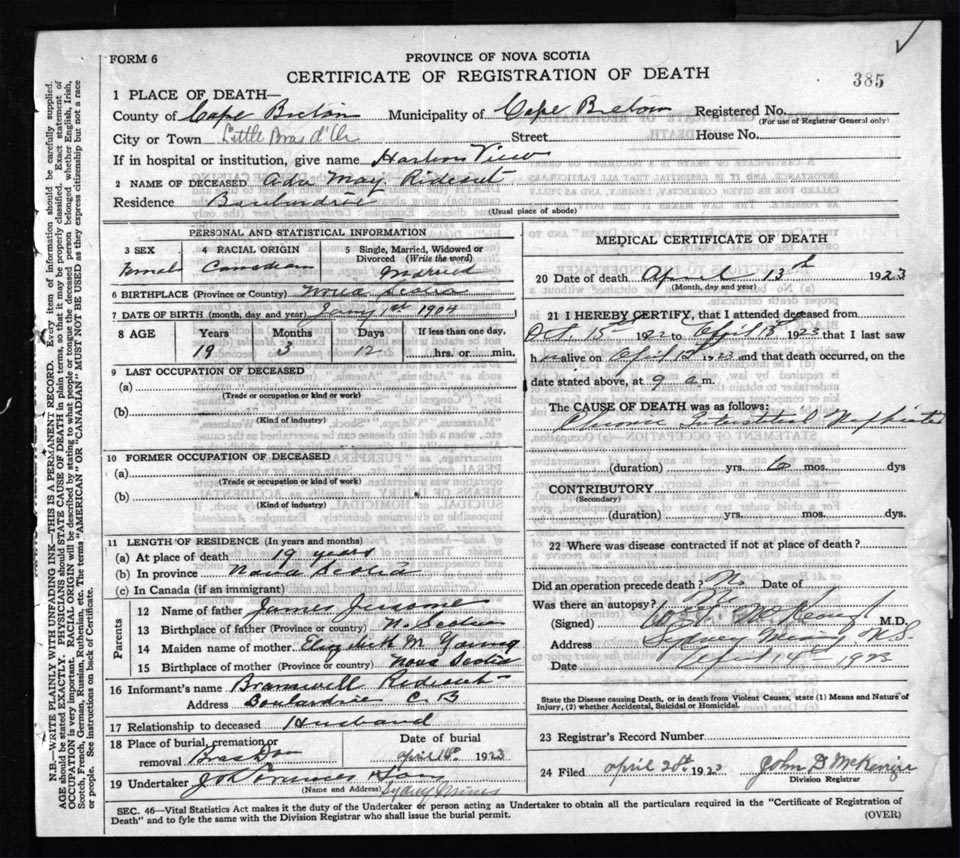 FORM 6
PROVINCE OF NOVA SCOTIA
CERTIFICATE OF REGISTRATION OF DEATH
385
1 PLACE OF DEATH—
County of Cape Breton Municipality of Cape Breton Registered No.
(For use of Registrar General only)
City or Town Little Bras d'Or Street House No.
If in hospital or institution, give name Harbor View
2 NAME OF DECEASED Ada May Rideout
Residence
(Usual place of abode)
PERSONAL AND STATISTICAL INFORMATION
3 SEX 4 RACIAL ORIGIN 5 Single, Married, Widowed or Divorced (Write the word)
Female Canadian Married
6 BIRTHPLACE (Province or Country) Nova Scotia
7 DATE OF BIRTH (month, day and year) Jany 1st 1904
8 AGE Years Months Days If less than one day,
19 3 12 hrs. or min.
9 LAST OCCUPATION OF DECEASED
(a)
(Trade or occupation or kind or work)
(b)
(Kind of industry)
10 FORMER OCCUPATION OF DECEASED
(a)
(Trade or occupation or kind of work)
(b)
(Kind of industry)
11 LENGTH OF RESIDENCE (In years and months)
(a) At place of death 19 years
(b) In province Nova Scotia
(c) In Canada (if an immigrant)
Parents
12 Name of father James
13 Birthplace of father (Province or country) N. Scotia
14 Maiden name of mother Elizabeth M Young
15 Birthplace of mother (Province or country) Nova Scotia
16 Informant's name Bramwell Rideout
Address C. B
17 Relationship to deceased Husband
18 Place of burial, cremation or removal Bras Dor
Date of burial April 16th 1923
19 Undertaker & Son
(Name and Address) Sydney Mines
MEDICAL CERTIFICATE OF DEATH
20 Date of death April 13th 1923
(Month, day and year)
21 I HEREBY CERTIFY, that I attended deceased from
Oct. 15th 1922 to April 13th 1923 that I last saw
h alive on April 1923 and that death occurred, on the
date stated above, at 9 a. m.
The CAUSE OF DEATH was as follows:
Chronic Interstitial Nephritis
(duration) yrs. 6 mos. dys
CONTRIBUTORY
(Secondary)
(duration) yrs. mos. dys.
22 Where was disease contracted if not at place of death?
Did an operation precede death? N Date of
Was there an autopsy?
(Signed) M.D.
Address Sydney Mines N.S.
Date April 14th 1923
State the Disease causing Death, or in death from Violent Causes, state (1) Means and Nature of
Injury, (2) whether Accidental, Suicidal or Homicidal.
23 Registrar's Record Number
24 Filed April 28th 1923 John D McKenzie
Division Registrar
SEC. 46—Vital Statistics Act makes it the duty of the Undertaker or person acting as Undertaker to obtain all the particulars required in the "Certificate of Registration of
Death" and to fyle the same with the Division Registrar who shall issue the burial permit.
(OVER)
N.B.—WRITE PLAINLY WITH UNFADING INK—THIS IS A PERMANENT RECORD. Every item of information should be carefully supplied.
AGE should be stated EXACTLY. PHYSICIANS should STATE CAUSE OF DEATH in plain terms, so that it may be properly classified. Exact statement of
OCCUPATION is very important. RACIAL ORIGIN will be described by stating to what people or tongue the deceased person belonged whether English, Irish,
Scotch, French, German, Russian, Ruthenian, etc. The terms "AMERICAN" OR "CANADIAN" MUST NOT BE USED as they express citizenship but not a race
or people. See instructions on back of Certificate.